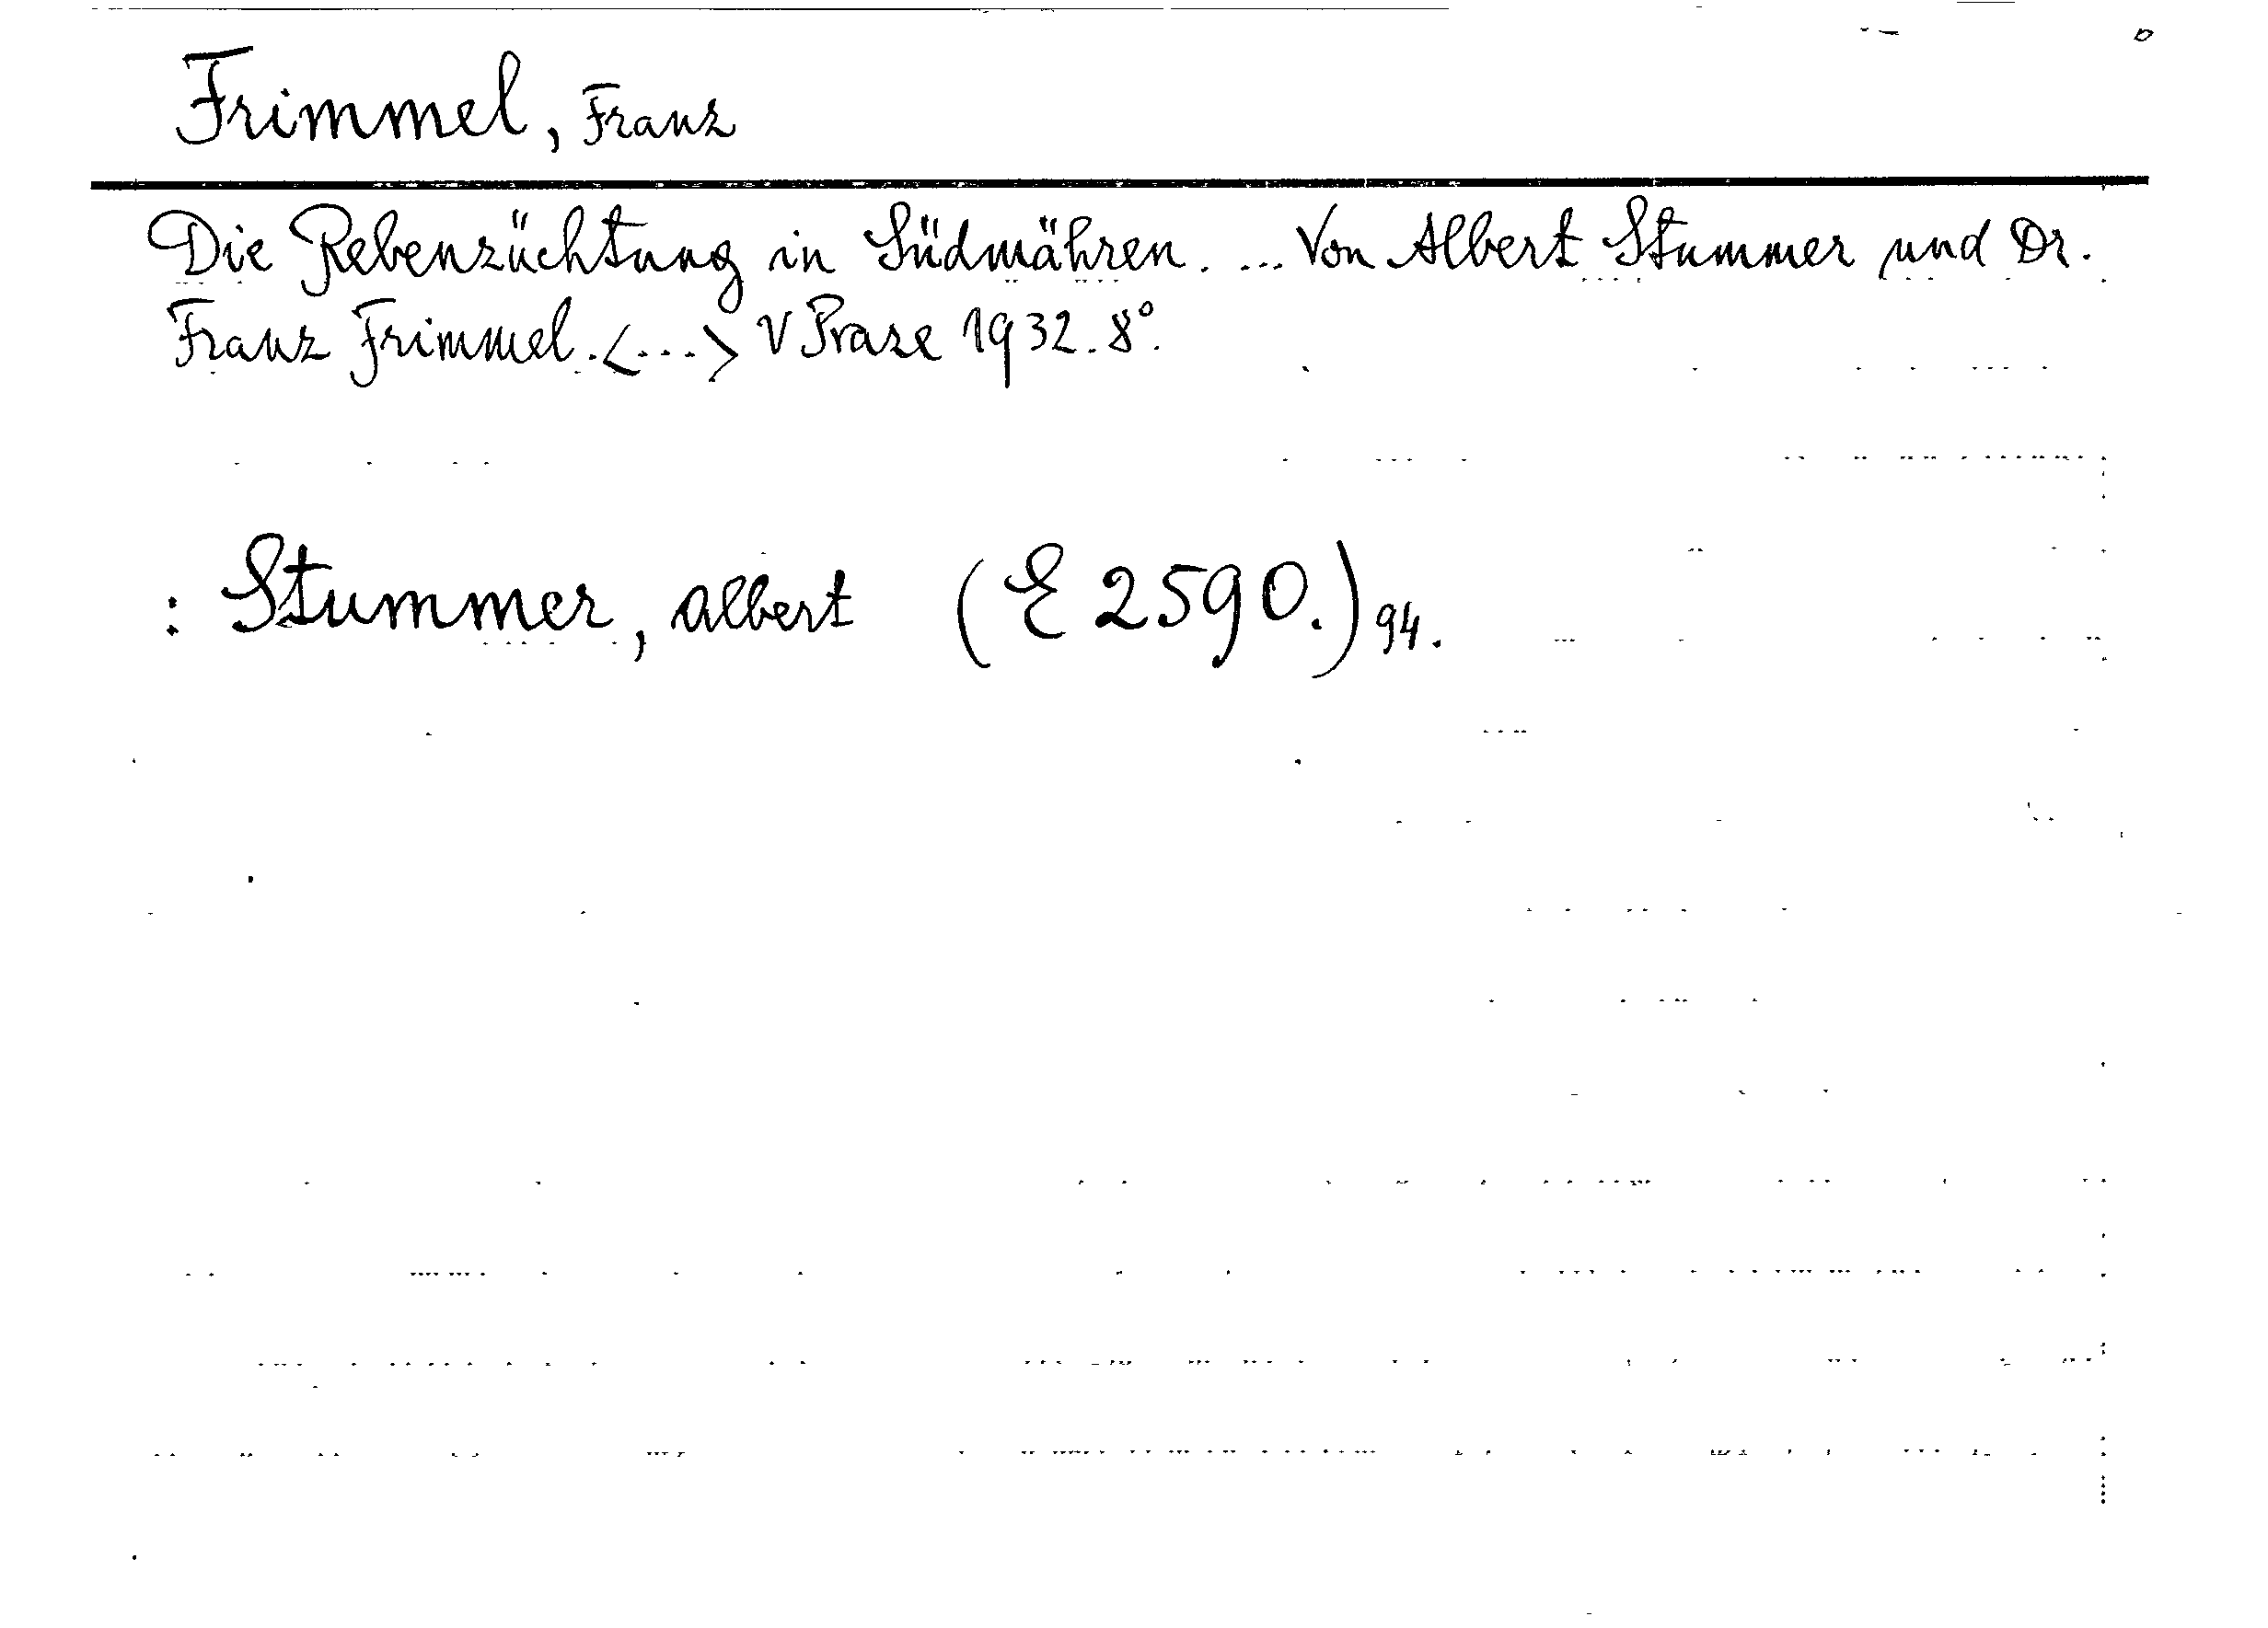 Frimmel, Franz
Die Rebenzüchtung in Südmähren. ... Von Albert Stummer und Dr.
Franz Frimmel. <...> V Praze 1932. 8°.
: Stummer, Albert (E 2590.) 94.